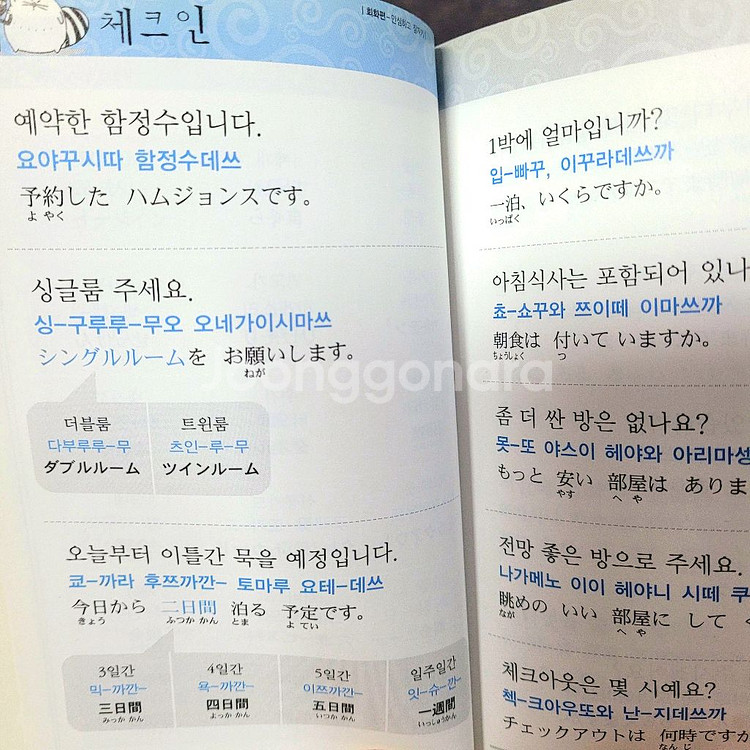 체크인
회화편-안심하고 잠자기
예약한 함정수입니다.
요야꾸시따 함정수데쓰
予約した ハムジョンスです。
よ やく
싱글룸 주세요.
싱-구루루-무오 오네가이시마쓰
シングルルームを お願いします。
ねが
더블룸
다부루루-무
ダブルルーム
트윈룸
츠인-루-무
ツインルーム
오늘부터 이틀간 묵을 예정입니다.
쿄-까라 후쯔까깐- 토마루 요테-데쓰
今日から 二日間 泊る 予定です。
きょう ふつか かん とま よ てい
3일간
믹-까깐-
三日間
みっか かん
4일간
욕-까깐-
四日間
よっか かん
5일간
이쯔까깐-
五日間
いつか かん
일주일간
잇-슈-깐-
一週間
いっしゅうかん
1박에 얼마입니까?
입-빠꾸, 이꾸라데쓰까
一泊、いくらですか。
いっぱく
아침식사는 포함되어 있나
쵸-쇼꾸와 쯔이떼 이마쓰까
朝食は 付いて いますか。
ちょうしょく つ
좀 더 싼 방은 없나요?
못-또 야스이 헤야와 아리마셍
もっと 安い 部屋は ありま
やす へ や
전망 좋은 방으로 주세요.
나가메노 이이 헤야니 시떼 쿠
眺めの いい 部屋に して
なが へ や
체크아웃은 몇 시예요?
첵-크아우또와 난-지데쓰까
チェックアウトは 何時ですか
なん じ
Joonggonara